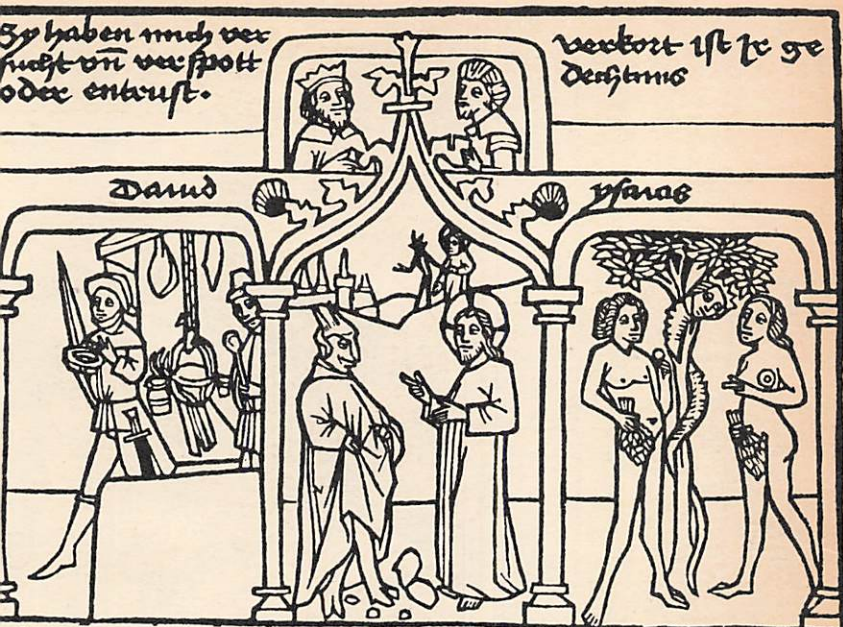 Sy haben mich ver
sucht vn̄ verspott
oder entrust.
verkort ist Ir ge
dechtnus
Dauid
ysaias